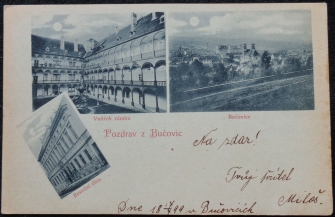 Vnitřek zámku
Bučovice
Pozdrav z Bučovic
Na zdar!
Tvůj přítel
Miloš
Dne 18 99 v Bučovicích